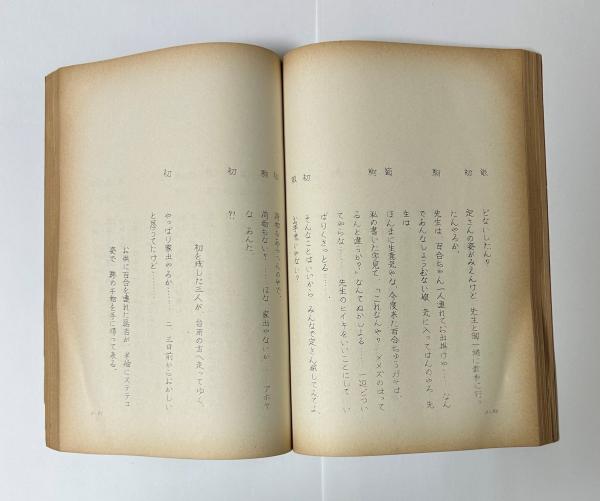 どないしたん?
定さんの姿がみえんけど 先生と御一緒に散歩に行っ
たんやろか
先生は 百合ちゃん一人連れてお出掛けや…… なん
であんなしょうむない娘 気に入ってはんのやろ 先
生は
初
駒
ほんまに生意気やな 今度来た百合ちゅう
私の書いた字見て 「これなんや? メメズのはって
るんと違うか?」なんてぬかしよる……一辺どつい
てやらな…… 先生のヒイキをいいことにして い
ばりくさっとる……
初
そんなことはいいから みんなで定さん探してんてよ
荷物もない?……ほな 家出やないか…… アホや
な あんた
駒
初
?!
初を残した三人が 台所の方へ走ってゆく。
初
やっぱり家出やろか…… 二、三日前からおかしい
と思ってたけど……
お供に百合を連れた
姿で 跨の干物を手に持って来る。